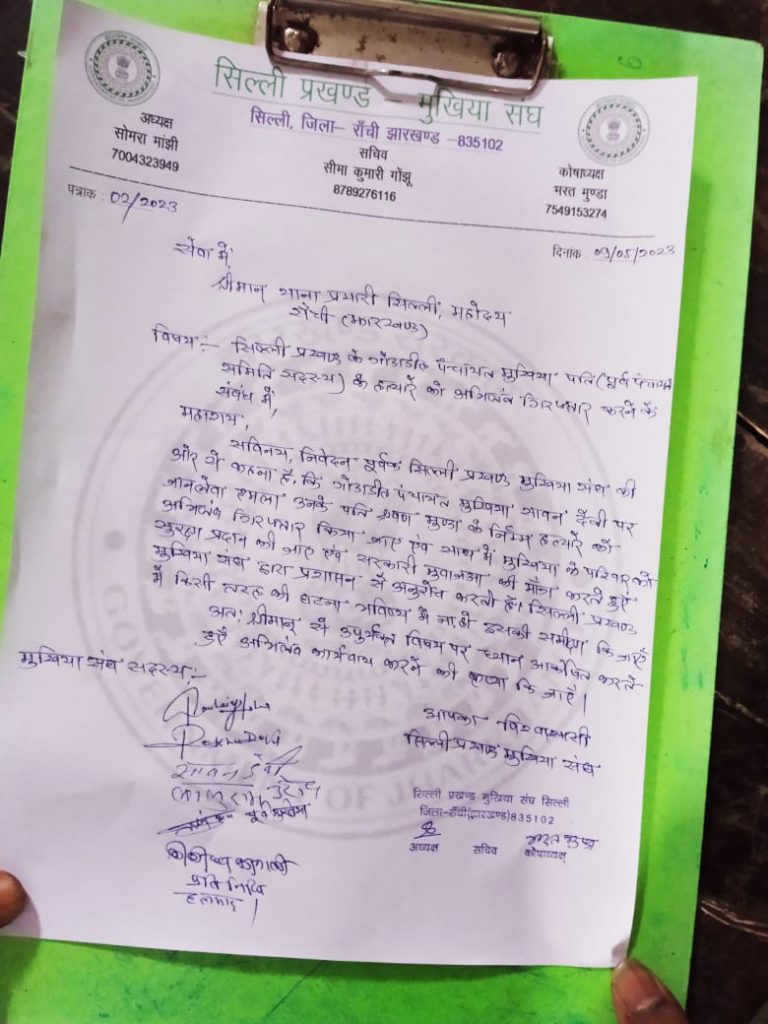 सिल्ली प्रखण्ड - मुखिया संघ
सिल्ली, जिला- राँची झारखण्ड -835102
अध्यक्ष
सोमरा मांझी
7004323949
सचिव
सीमा कुमारी गोंझू
8789276116
कोषाध्यक्ष
भरत मुण्डा
7549153274
पत्रांक : 02/2023
दिनांक : 09/05/2023
सेवा में,
श्रीमान् थाना प्रभारी सिल्ली, महोदय
राँची (झारखण्ड)
विषय :- सिल्ली प्रखण्ड के गोडाडीह पंचायत मुखिया पति (पूर्व पंचायत
समिति सदस्य) के हत्यारे को अविलंब गिरफ्तार करने के
संबंध में,
महाशय,
सविनय, निवेदन पूर्वक सिल्ली प्रखण्ड मुखिया संघ की
ओर से कहना है, कि गोडाडीह पंचायत मुखिया सावन देवी पर
जानलेवा हमला उनके पति मुण्डा के निर्मम हत्यारे को
अविलंब गिरफ्तार किया जाए एवं साथ में मुखिया के परिवार को
सुरक्षा प्रदान की जाए एवं सरकारी मुवाजआ की माँग करते हुएँ
मुखिया संघ द्वारा प्रशासन से अनुरोध करती है। सिल्ली प्रखण्ड
में किसी तरह की घटना भविष्य में ना हो इसकी समीक्षा कि जाएँ
अतः श्रीमान् से उपुर्यक्त विषय पर ध्यान आकर्षित करते
हुएँ अविलंब कार्यवाय करने की कृप्या कि जाएँ।
मुखिया संघ सदस्य :-
आपका विश्वासी
सिल्ली प्रखण्ड मुखिया संघ
Rekha Devi
सावन देवी
सिल्ली प्रखण्ड मुखिया संघ सिल्ली
जिला-राँची(झारखण्ड)835102
अध्यक्ष सचिव कोषाध्यक्ष
प्रतिनिधि
हलमाद